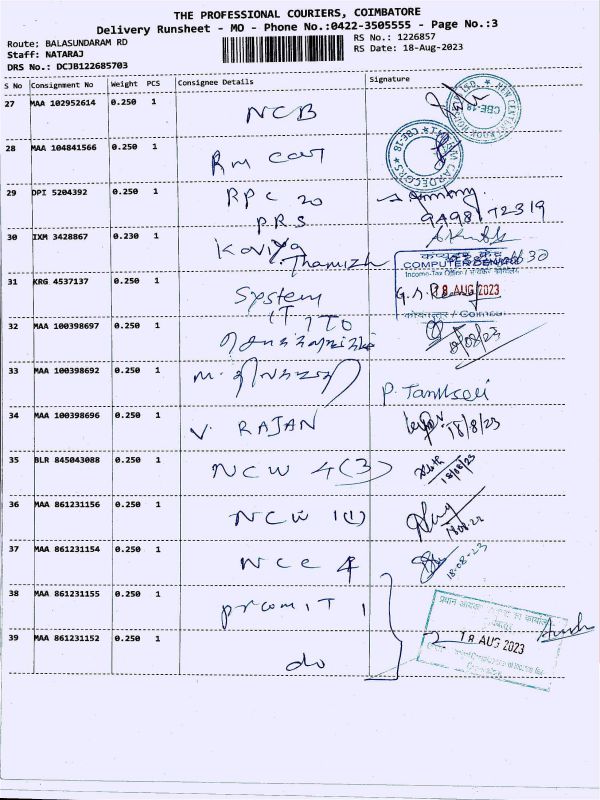 THE PROFESSIONAL COURIERS, COIMBATORE
Delivery Runsheet - MO - Phone No.:0422-3505555 - Page No.:3
Route: BALASUNDARAM RD
RS No.: 1226857
Staff: NATARAJ
RS Date: 18-Aug-2023
DRS No.: DCJB122685703
S No Consignment No Weight PCS Consignee Details Signature
27 MAA 102952614 0.250 1 NCB
28 MAA 104841566 0.250 1 Rm cart
29 DPI 5204392 0.250 1 RPC 20
PRS
9498172319
30 IXM 3428867 0.230 1 Kaviya
Thamizh
31 KRG 4537137 0.250 1 System
IT ITO
COMPUTER
Income-Tax Office
18 AUG 2023
32 MAA 100398697 0.250 1
18/08/23
33 MAA 100398692 0.250 1 M.
P. Tamilselvi
34 MAA 100398696 0.250 1 V. RAJAN
18/8/23
35 BLR 845043088 0.250 1 NCW 4(3)
18/08/23
36 MAA 861231156 0.250 1 NCW 1(1)
37 MAA 861231154 0.250 1 NCC 4
18-08-23
38 MAA 861231155 0.250 1 prcom IT 1
39 MAA 861231152 0.250 1 do
18 AUG 2023